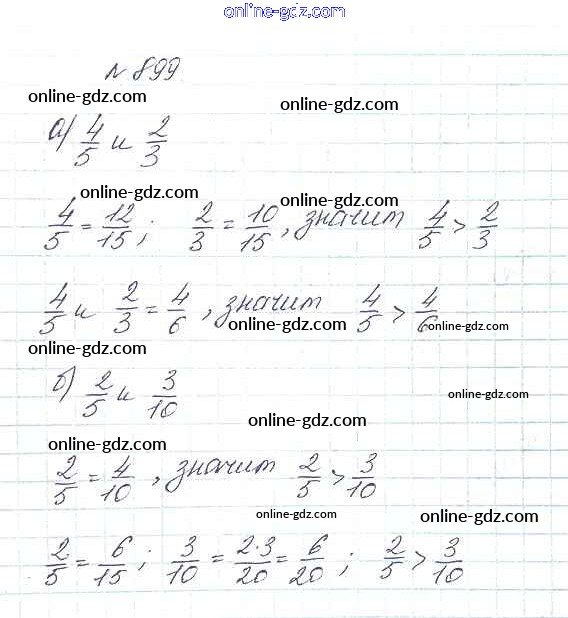 online-gdz.com
№ 899
online-gdz.com online-gdz.com
а) 4/5 и 2/3
online-gdz.com online-gdz.com
4/5 = 12/15; 2/3 = 10/15, значит 4/5 > 2/3
4/5 и 2/3 = 4/6, значит 4/5 > 4/6
online-gdz.com online-gdz.com
online-gdz.com
б) 2/5 и 3/10
online-gdz.com
online-gdz.com
online-gdz.com
2/5 = 4/10, значит 2/5 > 3/10
online-gdz.com online-gdz.com
2/5 = 6/15; 3/10 = 2·3/20 = 6/20; 2/5 > 3/10